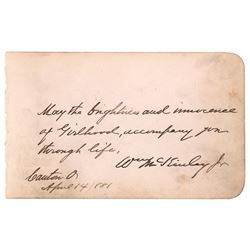 May the brightness and innocence
of Girlhood, accompany you
through life,
Wm McKinley Jr
Canton O.
April 14